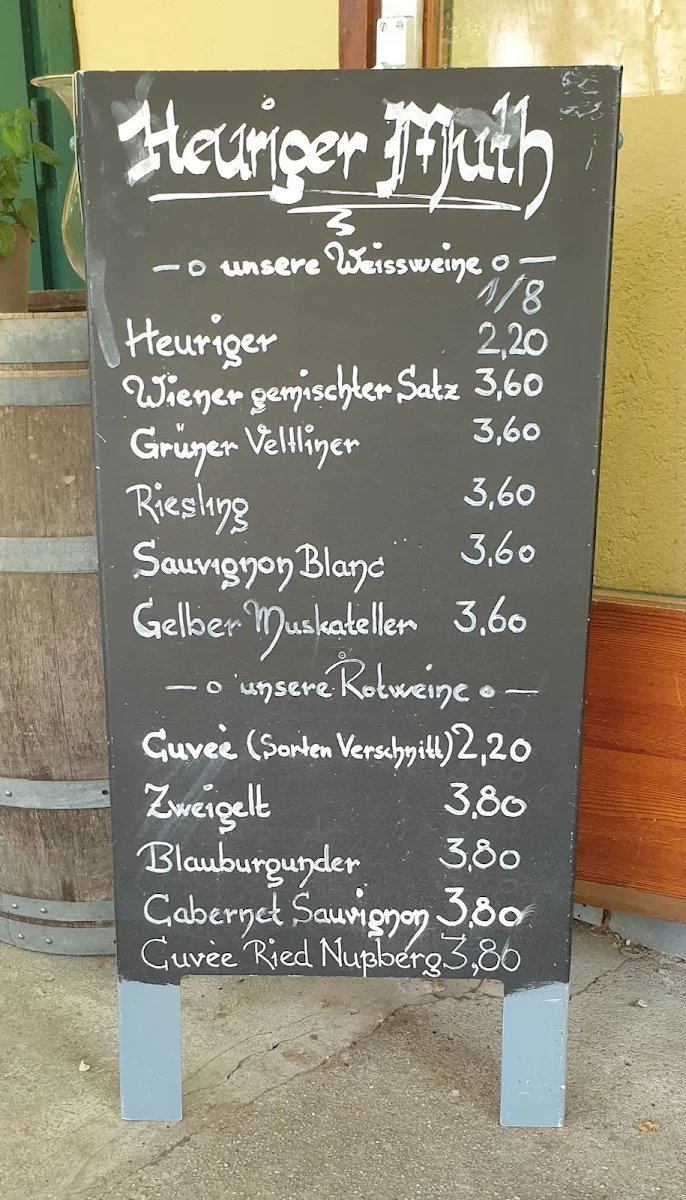 Heuriger Muth
—o unsere Weissweine o—
1/8
Heuriger 2,20
Wiener gemischter Satz 3,60
Grüner Veltliner 3,60
Riesling 3,60
Sauvignon Blanc 3,60
Gelber Muskateller 3,60
—o unsere Rotweine o—
Cuveè (Sorten Verschnitt) 2,20
Zweigelt 3,80
Blauburgunder 3,80
Cabernet Sauvignon 3,80
Cuvèe Ried Nußberg 3,80